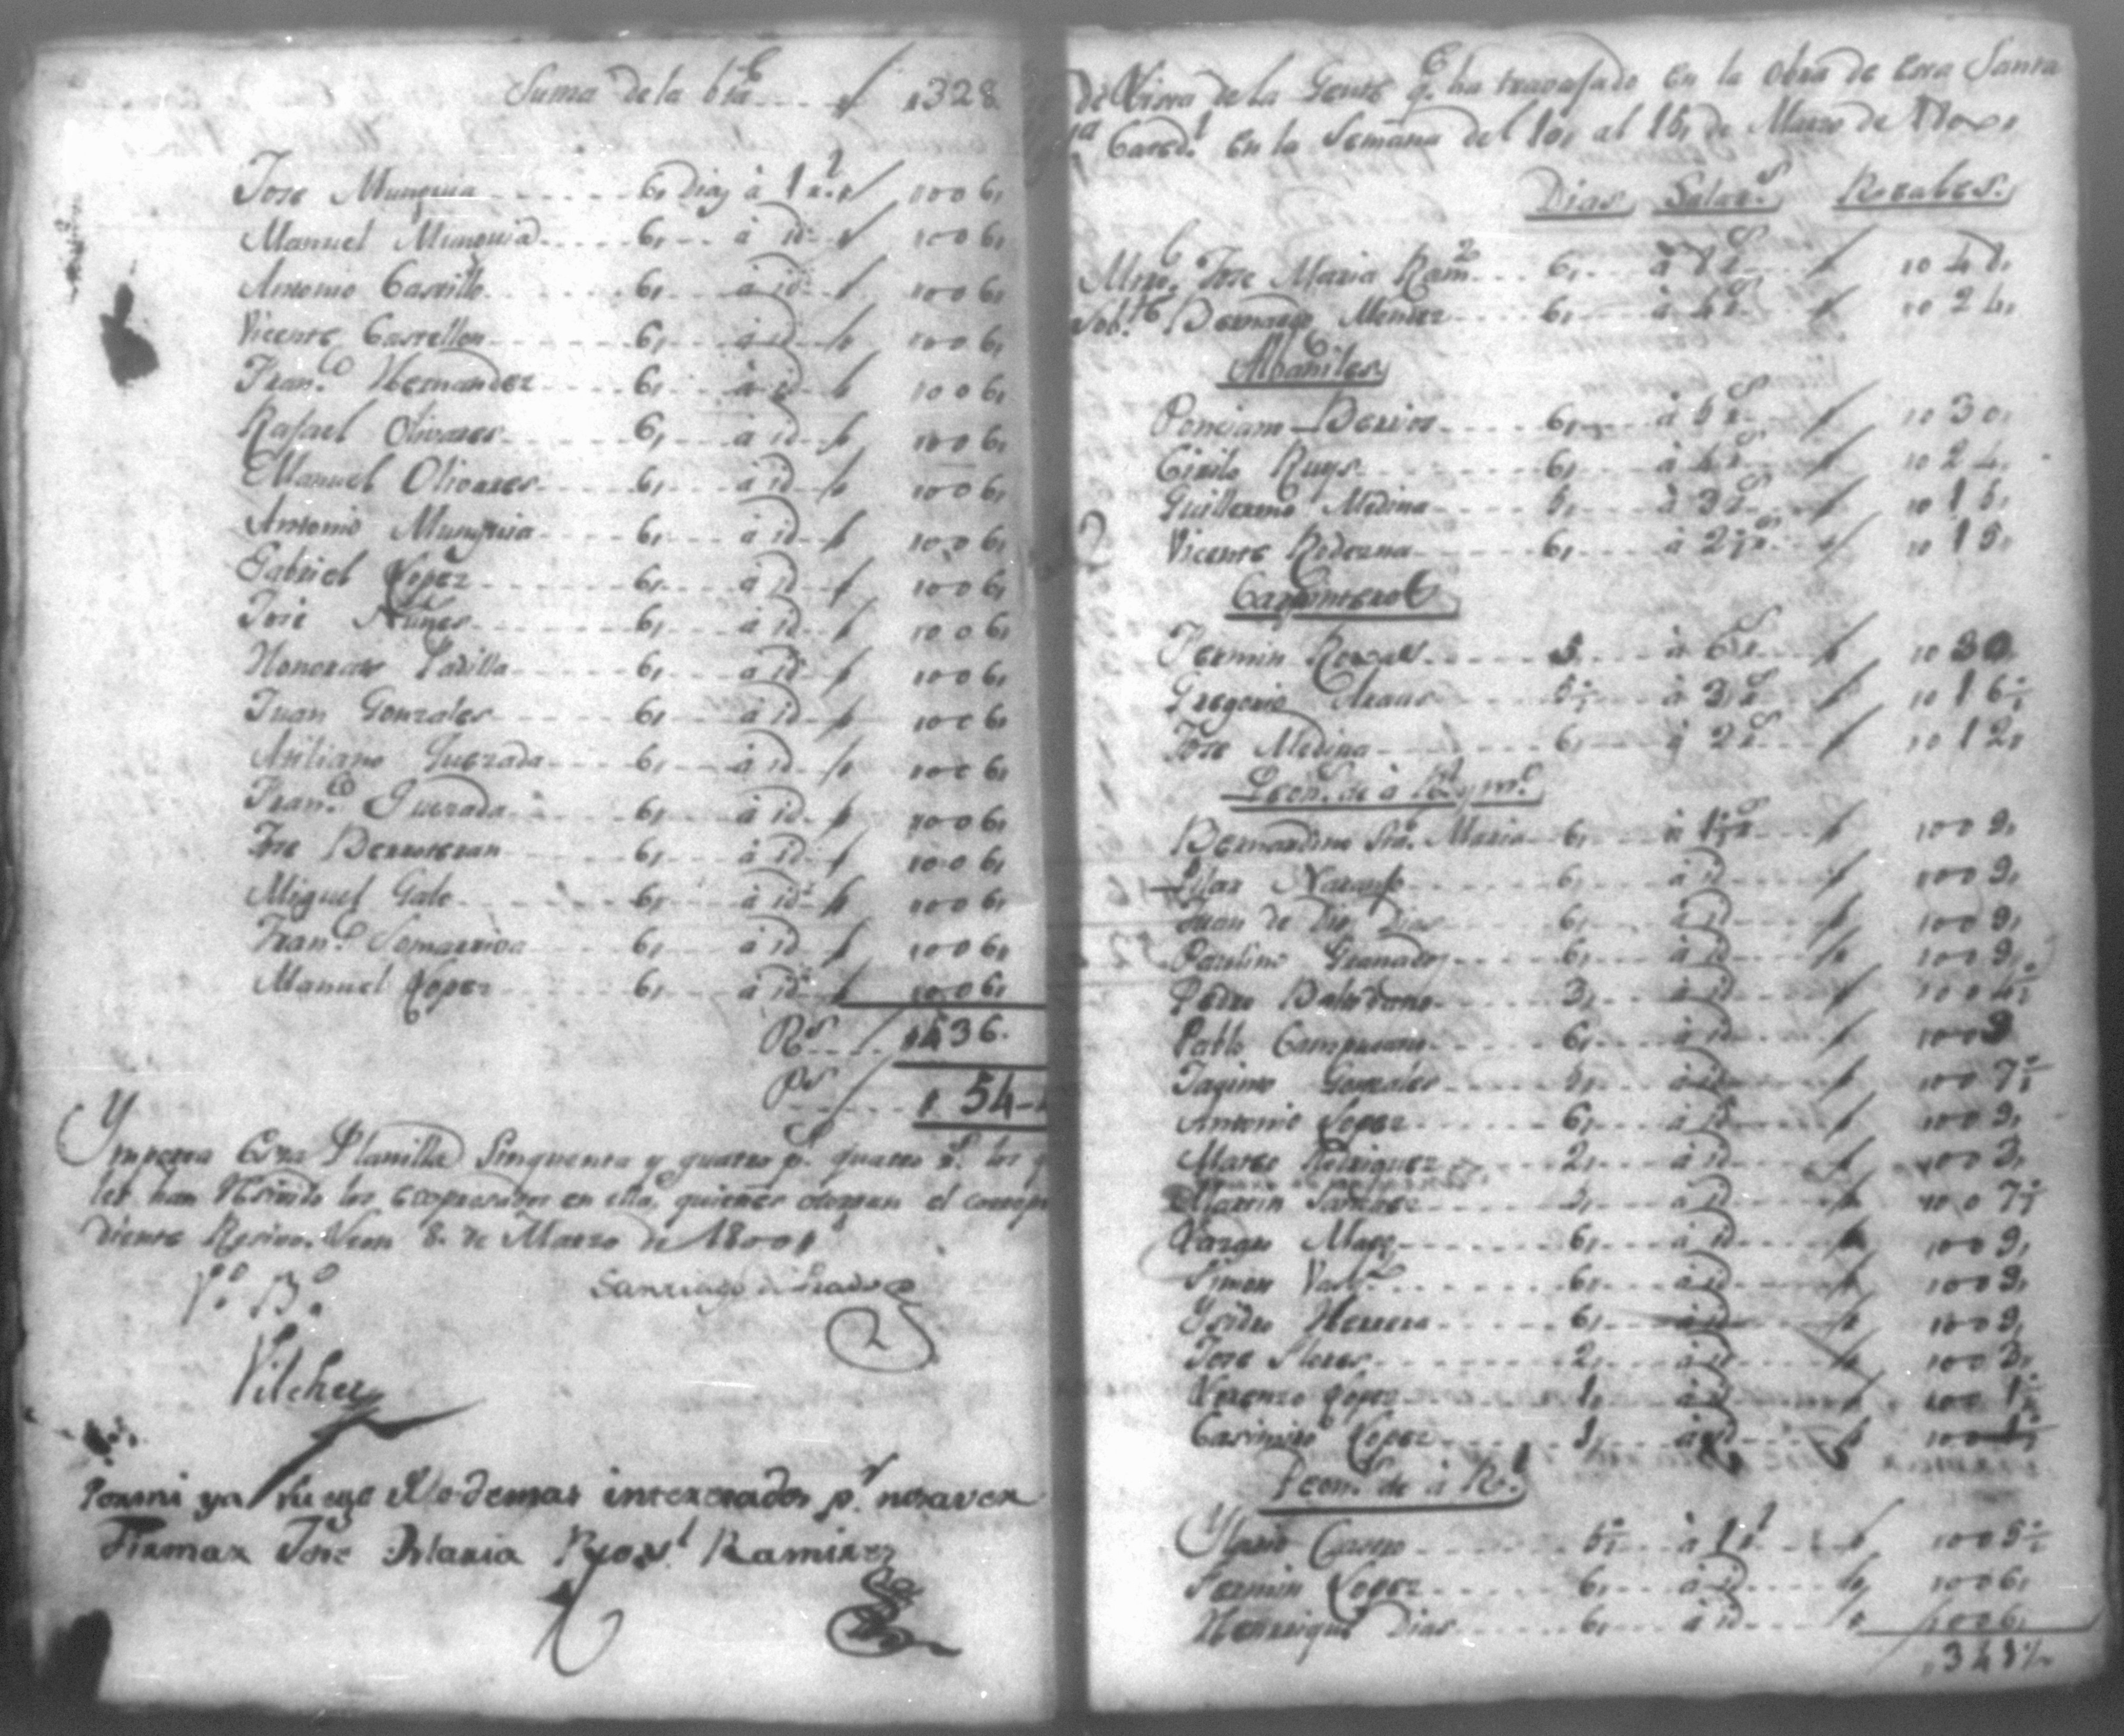 Suma de la bta / 328
Jose Munguia 6, Dias à 1 r.l / 1006,
Manuel Munguia 6, à id / 1006,
Antonio Castillo 6, à id / 1006,
Vicente Castellon 6, à id / 1006,
Fran.co Hernandez 6, à id / 1006,
Rafael Olivares 6, à id / 1006,
Manuel Olivares 6, à id / 1006,
Antonio Munguia 6, à id / 1006,
Gabriel Lopez 6, à id / 1006,
José Nuñes 6, à id / 1006,
Honorato Padilla 6, à id / 1006,
Juan Gonzales 6, à id / 1006,
Quezada 6, à id / 1006,
Fran.co Quezada 6, à id / 1006,
Jose Berroteran 6, à id / 1006,
Miguel Galo 6, à id / 1006,
Fran.co Somarriva 6, à id / 1006,
Manuel Lopez 6, à id / 1006,
R.s / 436.
P.s / 54-
Ymporta Esta Planilla Sinquenta y quatro p.s quatro r.s los q
les han Resivido los expresados en ella, quienes otorgan el corresp
diente Resivo. Leon 8. de Marzo de 1800,
V.o B.o Santiago de Prado
Vilchez
Pormi ya ruego delo demas interezados p.r nosaver
Firmar Jose Maria Ramirez
de Visra de la Gente q.e ha travajado en la obra de esta Santa
Cated.l en la Semana del 10, al 15, de Marzo de
Dias Salar.s Rr.ables.
Mro. Jose Maria Ram.z 6, à 8 r.s / 10 48,
Sob.te Bernardo Mendez 6, à 4 r.s / 10 24,
Albañiles
Ponciano Berrios 6, à 5 r.s / 10 30,
Cirilo Ruys 6, à 4 r.s / 10 24,
Guillermo Medina 5, à 3 r.s / 10 15,
Vicente Roderna 6, à 2½ r.s / 10 15,
Carpinteros
Fermin Roxas 5, à 6 r.s / 10 30,
Gregorio Araus 5½ à 3 r.s / 10 16½
Jose Medina 6, à 2 r.s / 10 12,
Peon.s de à R.l y m.o
Bernardino Sta. Maria 6, à 1½ r.s / 1009,
Pilar Naranjo 6, à id / 1009,
Juan de Dios Dias 6, à id / 1009,
Paulino Granados 6, à id / 1009,
Pedro Balodano 3, à id / 1004½
Pablo Campuzano 6, à id / 1009
Gonzales 5, à id / 1007½
Antonio Lopez 6, à id / 1009,
Mateo Rodriguez 2, à id / 1003,
Martin Sanchez 5, à id / 1007½
Lazaro 6, à id / 1009,
Simon Vasq.z 6, à id / 1009,
Ysidro Herrera 6, à id / 1009,
Jose Flores 2, à id / 1003,
Lorenzo Lopez 1, à id / 1001½
Casimiro Lopez 1, à id / 1001½
Peon.s de à R.l
Ylario Castro 5½ à 1 r.l / 1005½
Fermin Lopez 6, à id / 1006,
Henrique Dias 6, à id / 1006,